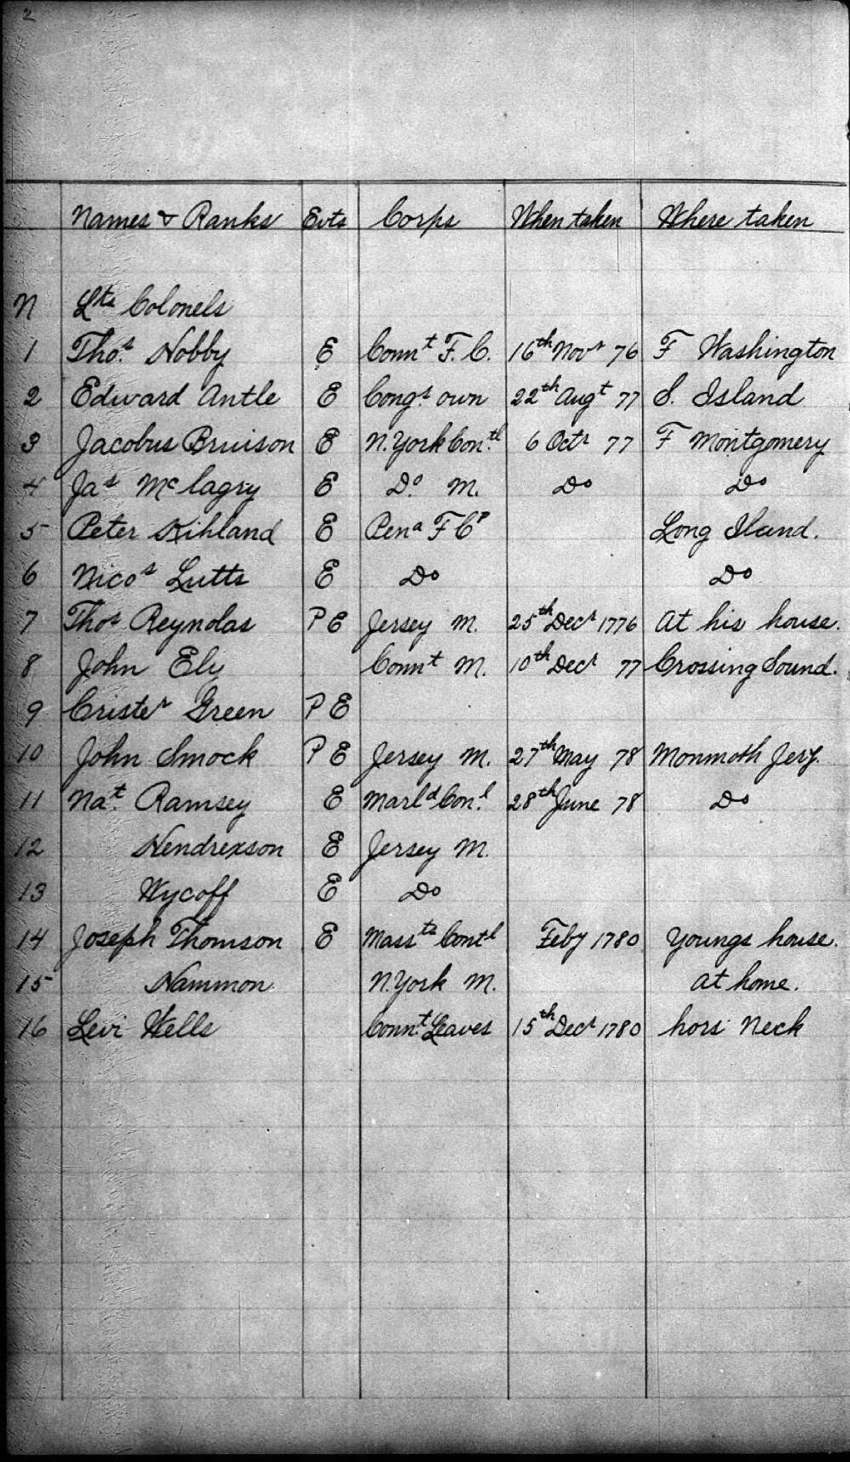 2
Names & Ranks Evts Corps When taken Where taken
N Lts Colonels
1 Thos. Hobby E Connt F. C. 16th Novr 76 F Washington
2 Edward Antle E Congs. own 22th Augt 77 S. Island
3 Jacobus Bruison E N. York Contl 6 Octr 77 F Montgomery
4 Jas Mclagry E Do. M. Do Do
5 Peter Kihland E Pena F Cp Long Iland.
6 Nicos Lutts E Do Do
7 Thos Reynolas P E Jersey M. 25th Decr 1776 At his house.
8 John Ely Connt M. 10th Decr 77 Crossing Sound.
9 Crister Green P E
10 John Smock P E Jersey M. 27th May 78 Monmoth Jery.
11 Nat. Ramsey E Marld Conl. 28th June 78 Do
12 Hendrexson E Jersey M.
13 Wycoff E Do
14 Joseph Thomson E Massts Contl Feby 1780 Youngs house.
15 Hammon N. York M. At home.
16 Levi Wells Connt. Leaves 15th Decr 1780 hors Neck